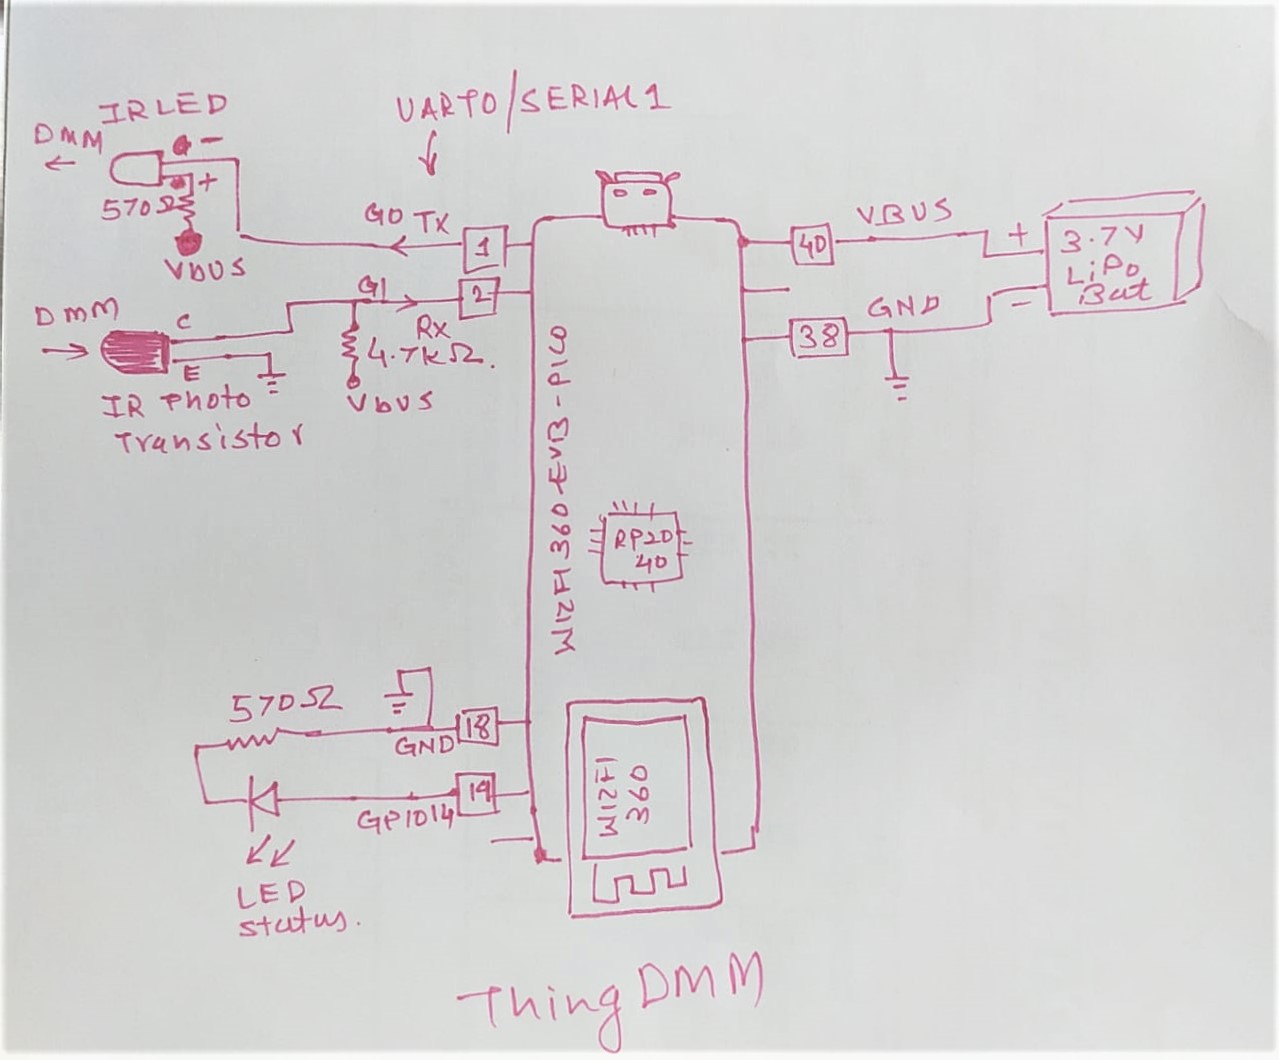 IR LED
UART0/SERIAL1
DMM
-
+
570Ω
VbUS
G0 TX
1
40
VBUS
+
3.7V
LiPo
Bat
-
GND
38
DMM
C
E
IR Photo
Transistor
G1
2
Rx
4.7kΩ.
VbUS
WIZFI360-EVB-PICO
RP20
40
570Ω
GND
18
GPIO14
19
LED
status.
WIZFI
360
ThingDMM